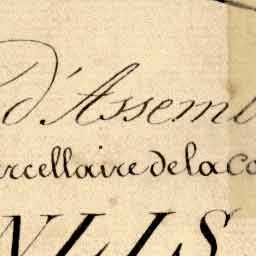 d'Assemb
rcellaire de la co
NLIS